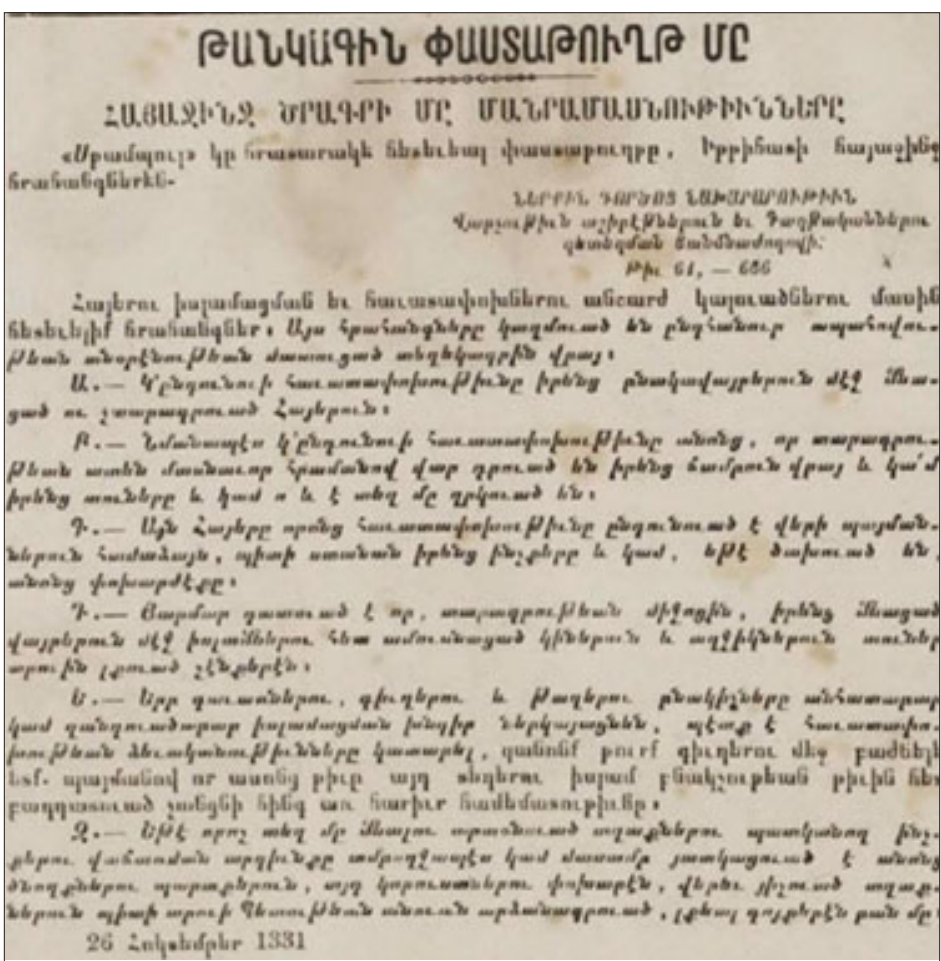 ԹԱՆԿԱԳԻՆ ՓԱՍՏԱԹՈՒՂԹ ՄԸ
ՀԱՅԱՋԻՆՋ ԾՐԱԳՐԻ ՄԸ ՄԱՆՐԱՄԱՍՆՈՒԹԻՒՆՆԵՐԸ
«Սթամպուլ» կը հրատարակէ հետեւեալ փաստաթուղթը, Իթթիհատի հայաջինջ
հրահանգներէն.
ՆԵՐՔԻՆ ԳՈՐԾՈՑ ՆԱԽԱՐԱՐՈՒԹԻՒՆ
Վարչութիւն աշիրէթներուն եւ Գաղթականներու
զետեղման յանձնաժողովի։
Թիւ 61, — 686
Հայերու իսլամացման եւ հաւատափոխներու անշարժ կալուածներու մասին
հետեւելիք հրահանգներ։ Այս հրահանգները կազմուած են ընդհանուր ապահովու-
թեան տնօրէնութեան մատուցած տեղեկագրին վրայ։
Ա.— Կ՚ընդունուի հաւատափոխութիւնը իրենց բնակավայրերուն մէջ մնա-
ցած ու չտարագրուած Հայերուն։
Բ.— Նմանապէս կ՚ընդունուի հաւատափոխութիւնը անոնց, որ տարագրու-
թեան ատեն մասնաւոր հրամանով վար դրուած են իրենց ճամբուն վրայ և կա՛մ
իրենց տուները և կամ ո և է տեղ մը ղրկուած են։
Գ.— Այն Հայերը որոնց հաւատափոխութիւնը ընդունուած է վերի պայման-
ներուն համաձայն, պիտի ստանան իրենց ինչքերը և կամ, եթէ ծախուած են,
անոնց փոխարժէքը։
Դ.— Յարմար դատուած է որ, տարագրութեան միջոցին, իրենց մնացած
վայրերուն մէջ իսլամներու հետ ամուսնացած կիներուն և աղջիկներուն տուներ
տրուին լքուած շէնքերէն։
Ե.— Երբ գաւառներու, գիւղերու և թաղերու բնակիչները անհատաբար
կամ զանգուածաբար իսլամացման խնդիր ներկայացնեն, պէտք է հաւատափո-
խութեան ձեւականութիւնները կատարել, զանոնք թուրք գիւղերու մէջ բաժնելէ
ետք. պայմանով որ ասոնց թիւը այդ տեղերու իսլամ բնակչութեան թիւին հետ
բաղդատուած չանցնի հինգ առ հարիւր համեմատութիւնը։
Զ.— Եթէ որոշ տեղ մը մնալու արտօնուած տղաքներու պատկանող ինչ-
քերու վաճառման արդիւնքը ամբողջապէս կամ մասամբ յատկացուած է անոնց
ծնողքներու պարտքերուն, այդ կորուստներու փոխարէն, վերեւ յիշուած տղաք-
ներուն պիտի տրուի Պետութեան անուան արձանագրուած, լքեալ գոյքերէն բան մը։
26 Հոկտեմբեր 1331